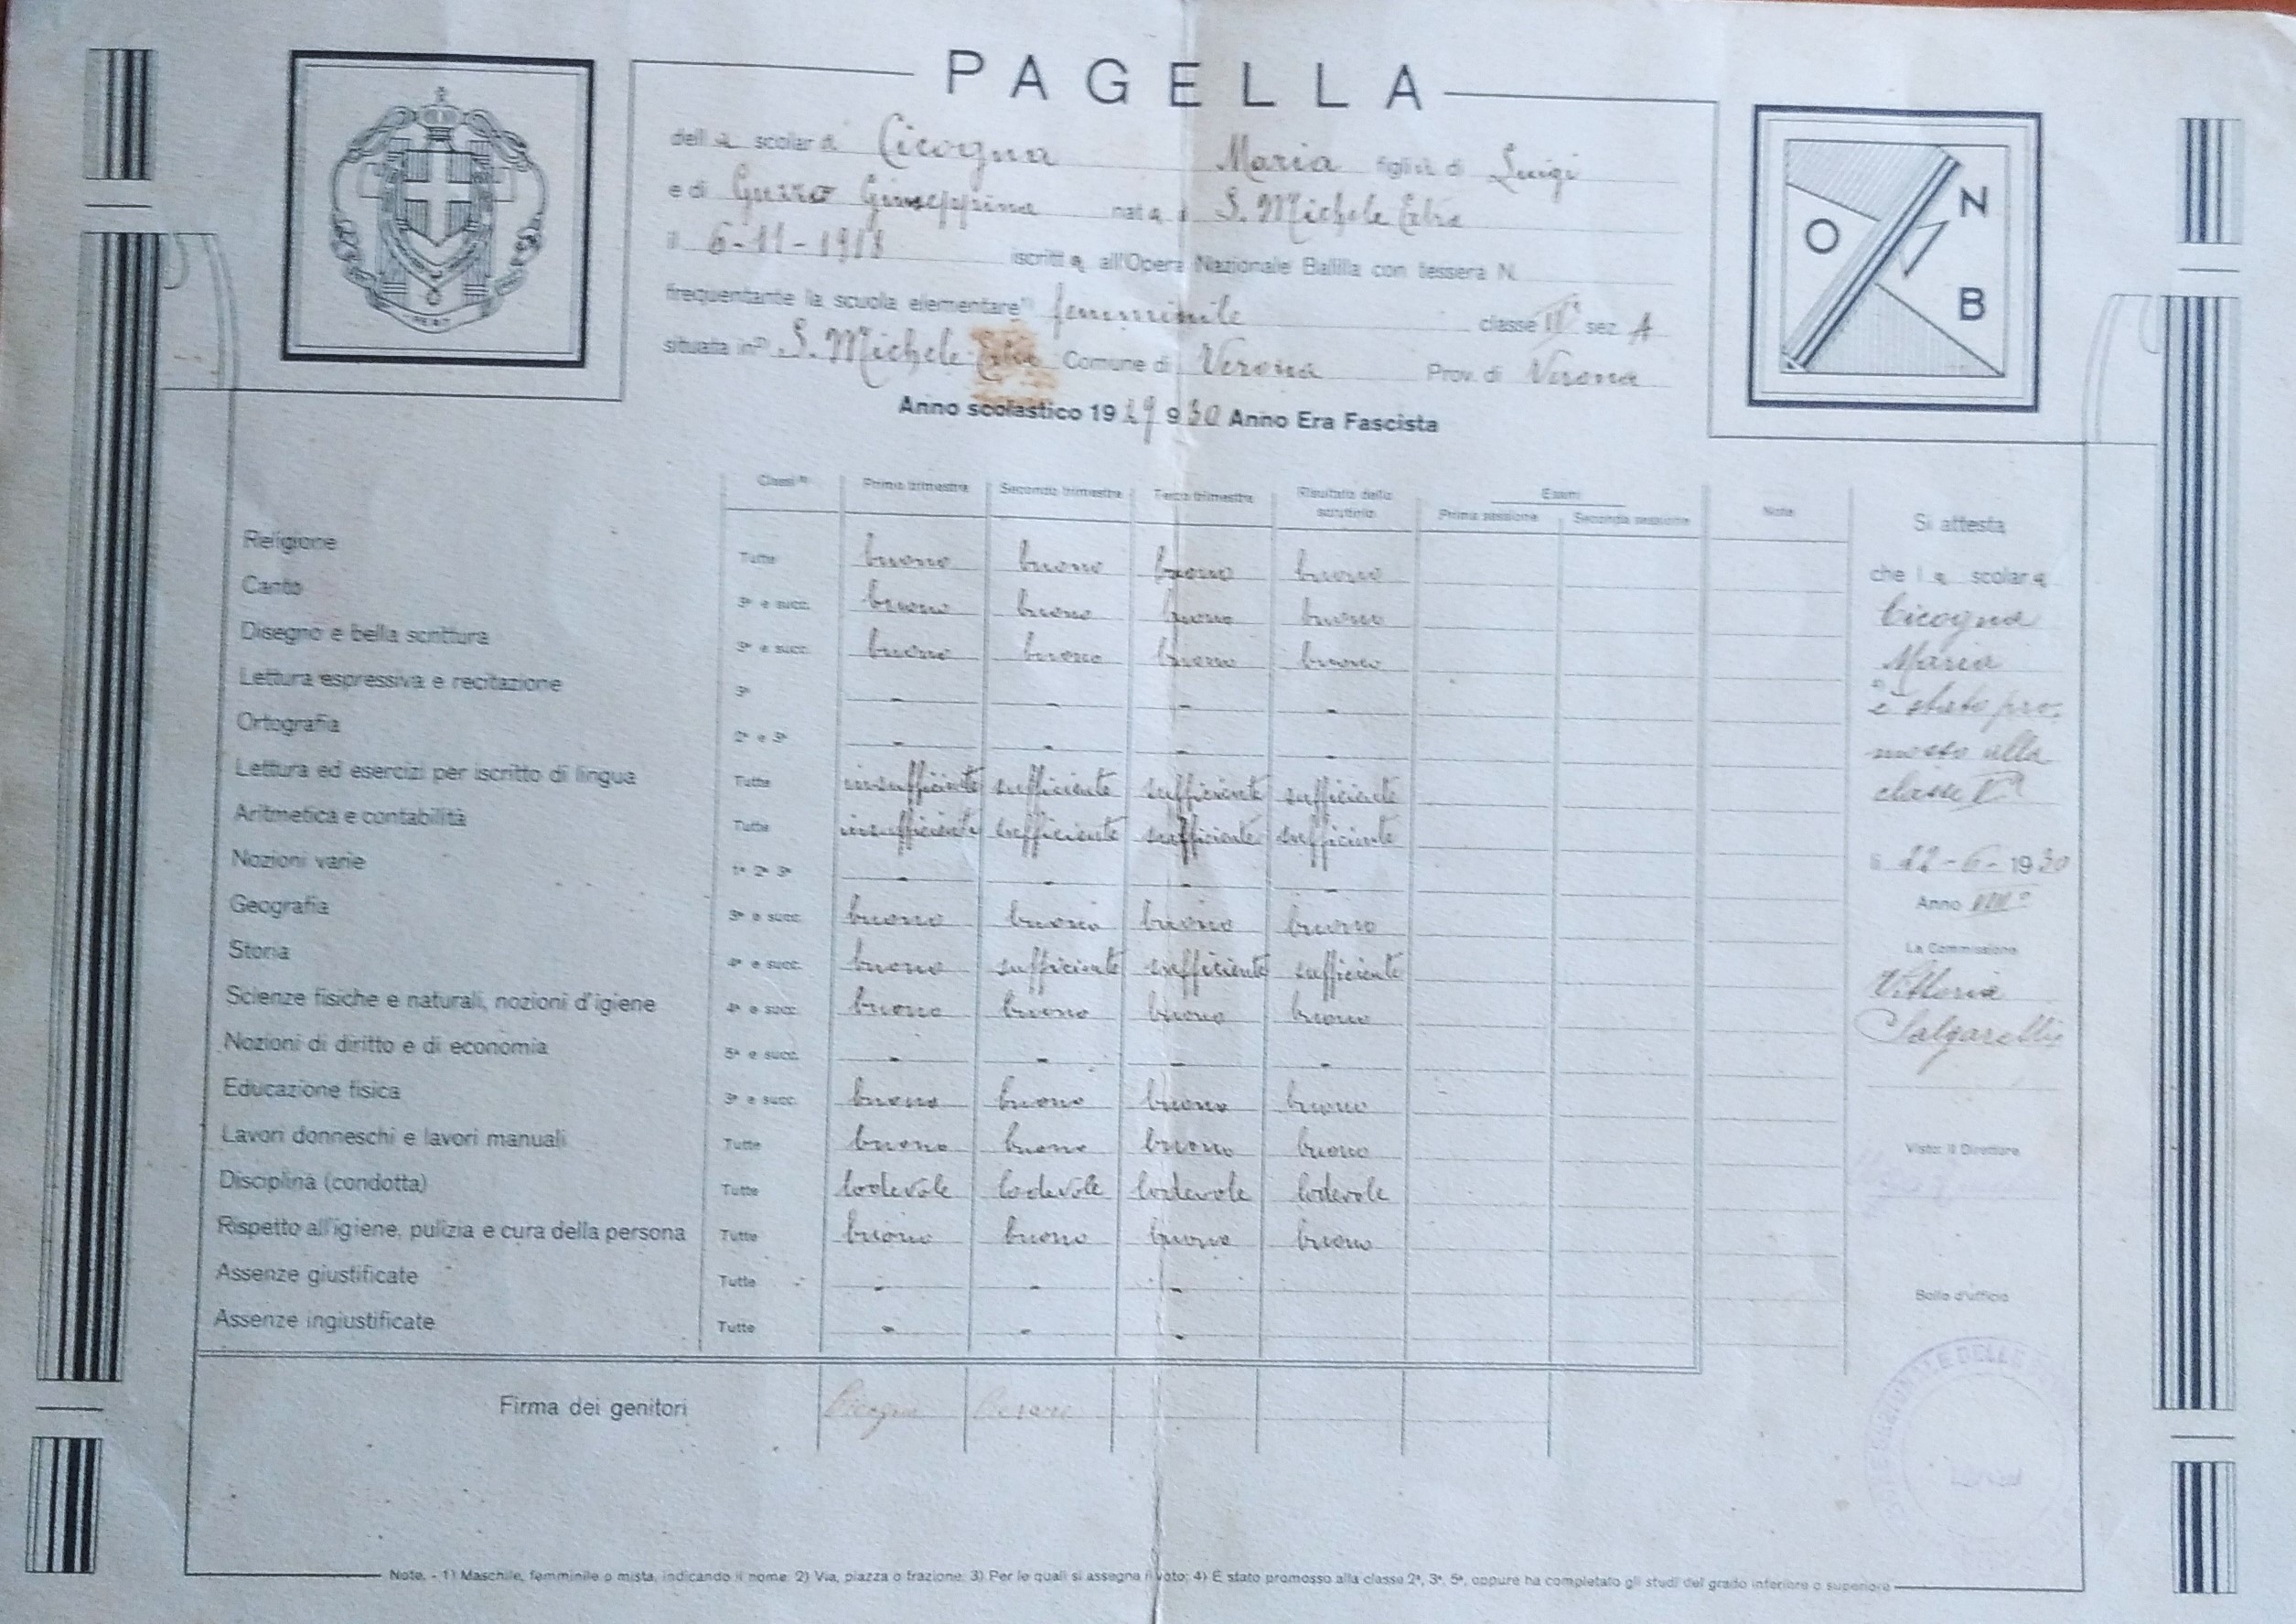 PAGELLA
della scolara Cicogna Maria figlia di Luigi
e di Giuseppina nata a S. Michele Extra
il 6-11-1918 iscritta all'Opera Nazionale Balilla con tessera N.
frequentante la scuola elementare 1) femminile classe IVª sez. A
situata in 2) S. Michele Extra Comune di Verona Prov. di Verona
Anno scolastico 1929 930 Anno Era Fascista
O N B
FERT
Classi 3) Primo trimestre Secondo trimestre Terzo trimestre Risultato dello scrutinio Esami Prima sessione Seconda sessione Note
Religione Tutte buono buono buono buono
Canto 3ª e succ. buono buono buono buono
Disegno e bella scrittura 3ª e succ. buono buono buono buono
Lettura espressiva e recitazione 3ª - - - -
Ortografia 2ª e 3ª - - - -
Lettura ed esercizi per iscritto di lingua Tutte insufficiente sufficiente sufficiente sufficiente
Aritmetica e contabilità Tutte insufficiente sufficiente sufficiente sufficiente
Nozioni varie 1ª 2ª 3ª - - - -
Geografia 3ª e succ. buono buono buono buono
Storia 4ª e succ. buono sufficiente sufficiente sufficiente
Scienze fisiche e naturali, nozioni d'igiene 4ª e succ. buono buono buono buono
Nozioni di diritto e di economia 5ª e succ. - - - -
Educazione fisica 3ª e succ. buono buono buono buono
Lavori donneschi e lavori manuali Tutte buono buono buono buono
Disciplina (condotta) Tutte lodevole lodevole lodevole lodevole
Rispetto all'igiene, pulizia e cura della persona Tutte buono buono buono buono
Assenze giustificate Tutte - - -
Assenze ingiustificate Tutte - - -
Firma dei genitori Cicogna
Si attesta
che la scolara
Cicogna
Maria
4) è stato pro=
mosso alla
classe Vª
li 22-6-1930
Anno VIIIº
La Commissione
Vittoria
Salgarelli
Visto: Il Direttore
Bollo d'ufficio
Note. - 1) Maschile, femminile o mista, indicando il nome; 2) Via, piazza o frazione; 3) Per le quali si assegna il voto; 4) È stato promosso alla classe 2ª, 3ª, 5ª, oppure ha completato gli studi del grado inferiore o superiore